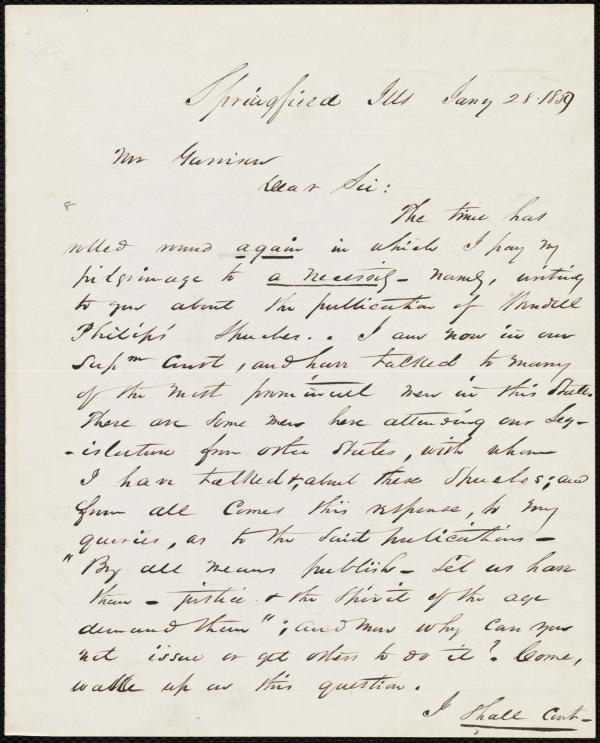 Springfield Ills Jany 28-1859
Mr Garrison
Dear Sir:
8
The time has
rolled round again in which I pay my
pilgrimage to a necessity - namely, writing
to you about the publication of Wendell
Philips' Speeches.. I am now in our
Supm Court, and have talked to many
of the most prominent men in this State.
There are some men here attending our Leg-
-islature from other States, with whom
I have talked &, about these Speeches; and
from all comes this response, to my
queries, as to the said publications -
"By all means publish - Let us have
them - justice & the spirit of the age
demand them"; and now why can you
not issue or get others to do it? Come,
wake up on this question.
I shall cont-